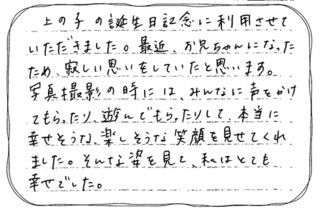 上の子の誕生日記念に利用させて
いただきました。最近、お兄ちゃんになった
ため、寂しい思いをしていたと思います。
写真撮影の時には、みんなに声をかけ
てもらったり、遊んでもらったりして、本当に
幸せそうな、楽しそうな笑顔を見せてくれ
ました。そんな姿を見て、私はとても
幸せでした。